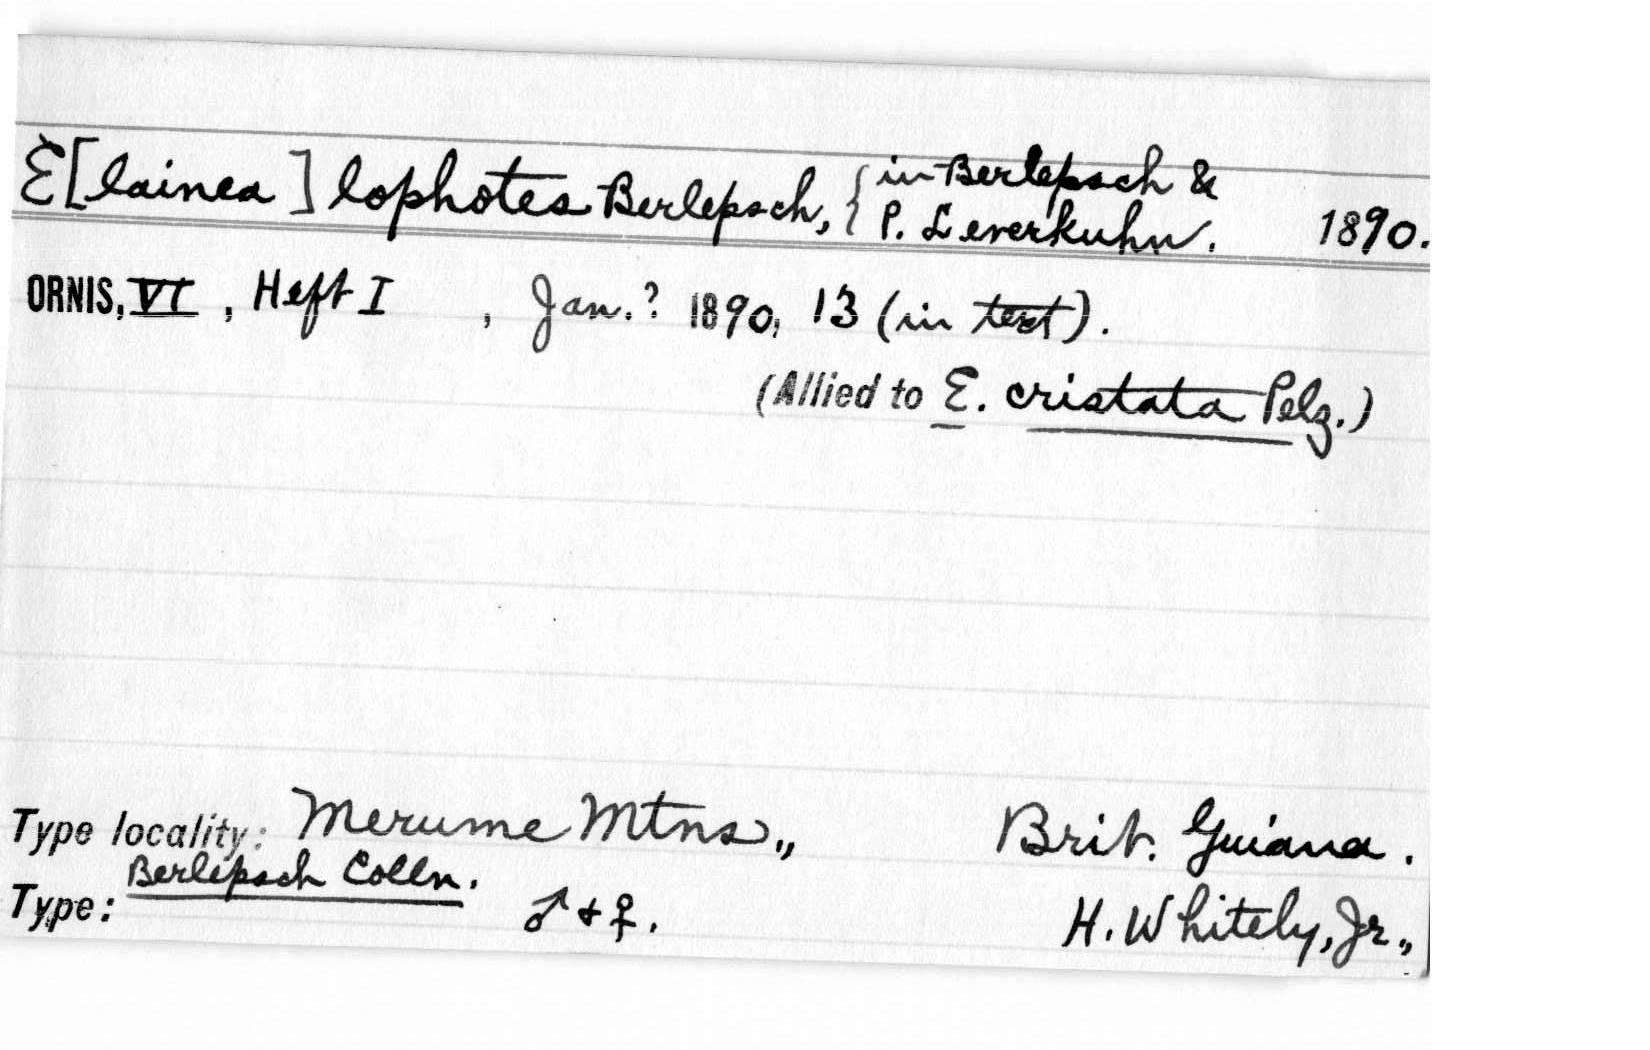 E[lainea] lophotes Berlepsch, {in Berlepsch &
P. Leverkuhn. 1890.
ORNIS, VI, Heft I , Jan.? 1890, 13 (in text).
(Allied to E. cristata Pelz.)
Type locality: Merume Mtns., Brit. Guiana.
Berlepsch Colln.
Type: ♂ + ♀. H. Whitely, Jr.,